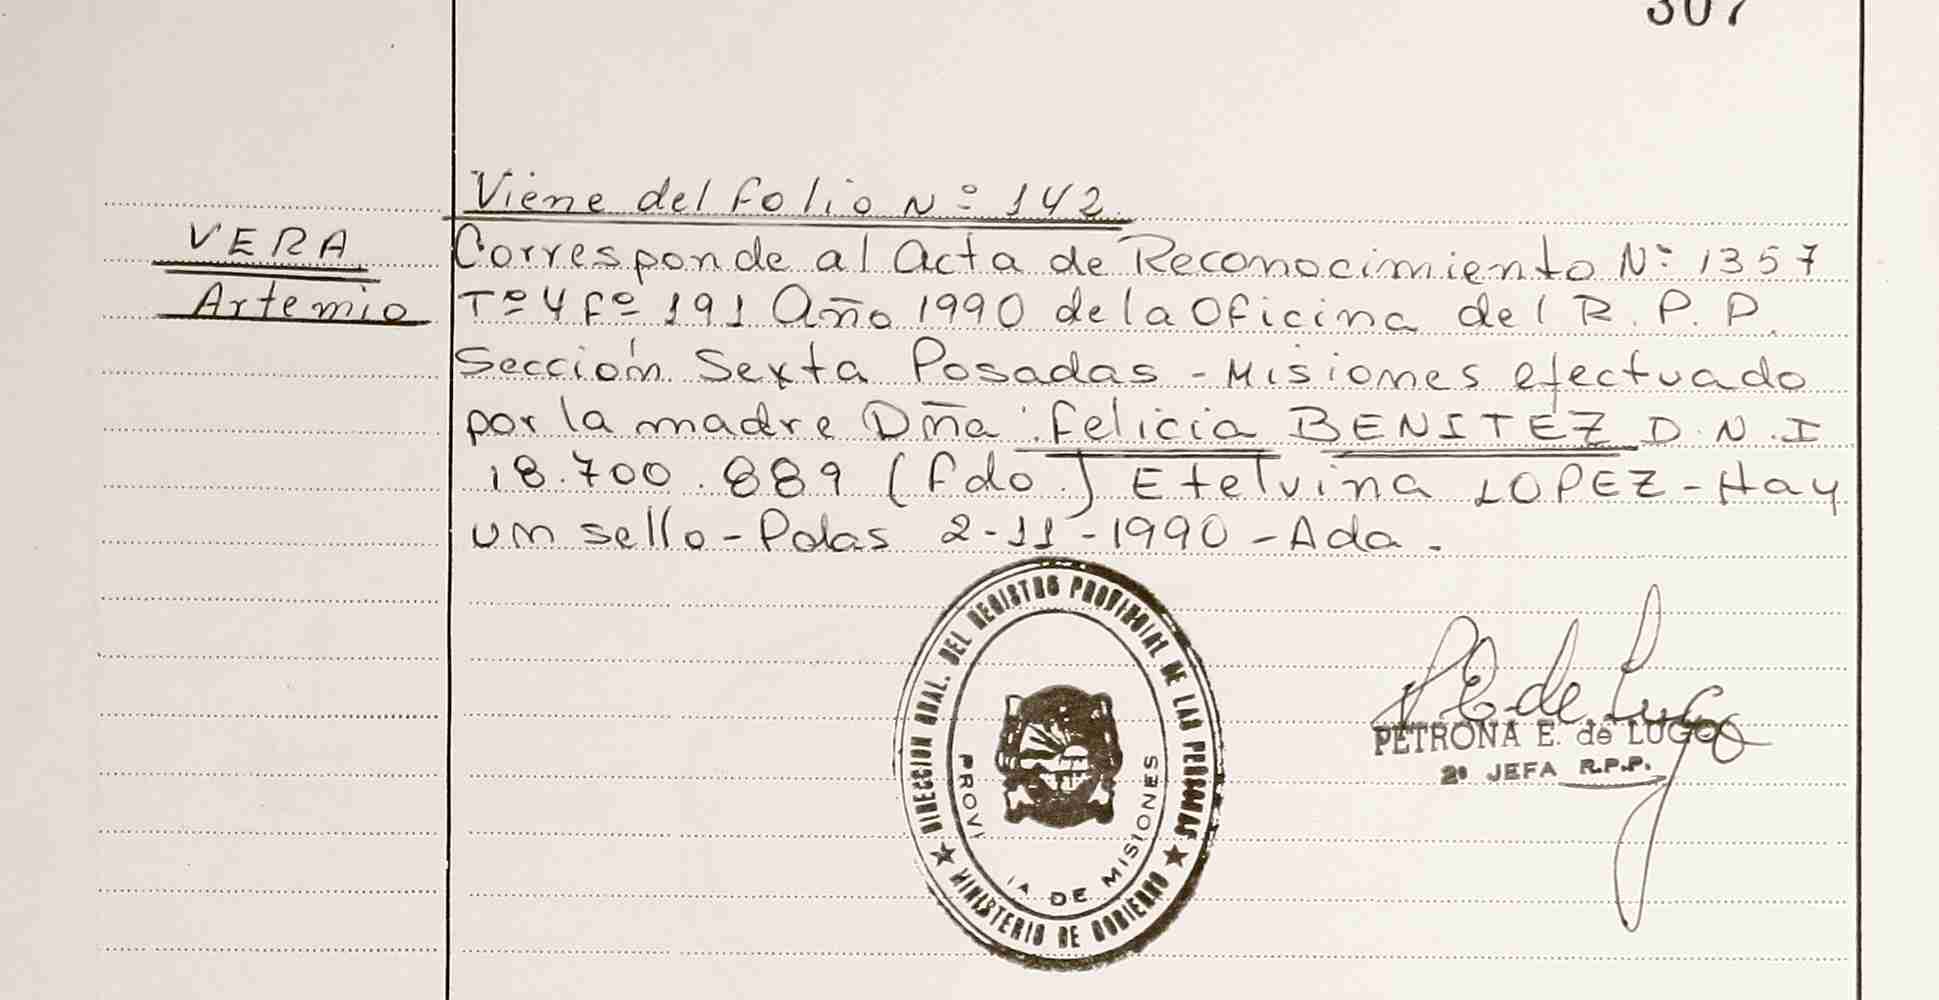 307
Viene del folio Nº 142
VERA
Artemio
Corresponde al Acta de Reconocimiento Nº 1357
Tº 4 fº 191 Año 1990 de la Oficina del R.P.P.
Sección Sexta Posadas - Misiones efectuado
por la madre Dña. Felicia BENITEZ D.N.I
18.700.889 (fdo.) Etelvina LOPEZ - Hay
un sello - Pdas 2-11-1990 - Ada.
DIRECCION GRAL. DEL REGISTRO PROVINCIAL DE LAS PERSONAS
MINISTERIO DE GOBIERNO
PROVI IA DE MISIONES
P E de Lugo
PETRONA E. de LUGO
2º JEFA R.P.P.